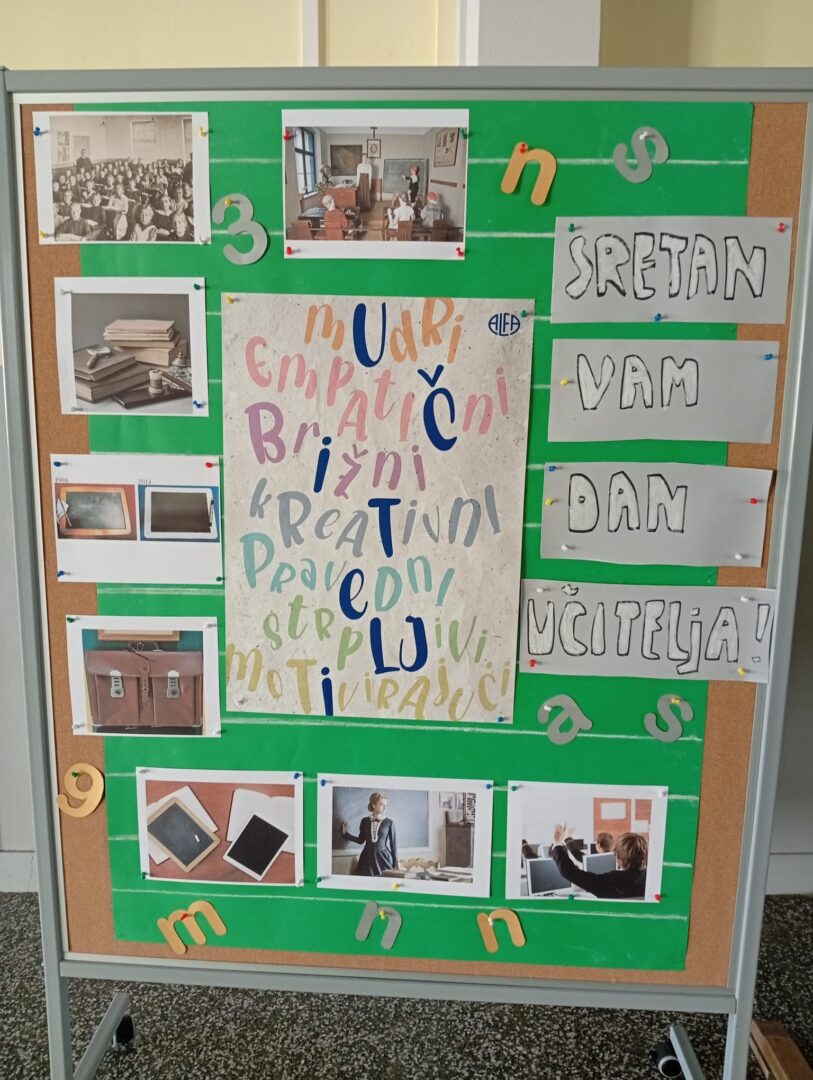 3
n s
mUdRi
ALFA
EmPATIČni
BRižni
kREATivnI
PRavedni
stRpLJivi
moTiviRAJući
SRETAN
VAM
DAN
UČITELjA!
1906 2014
a s
9
m n n